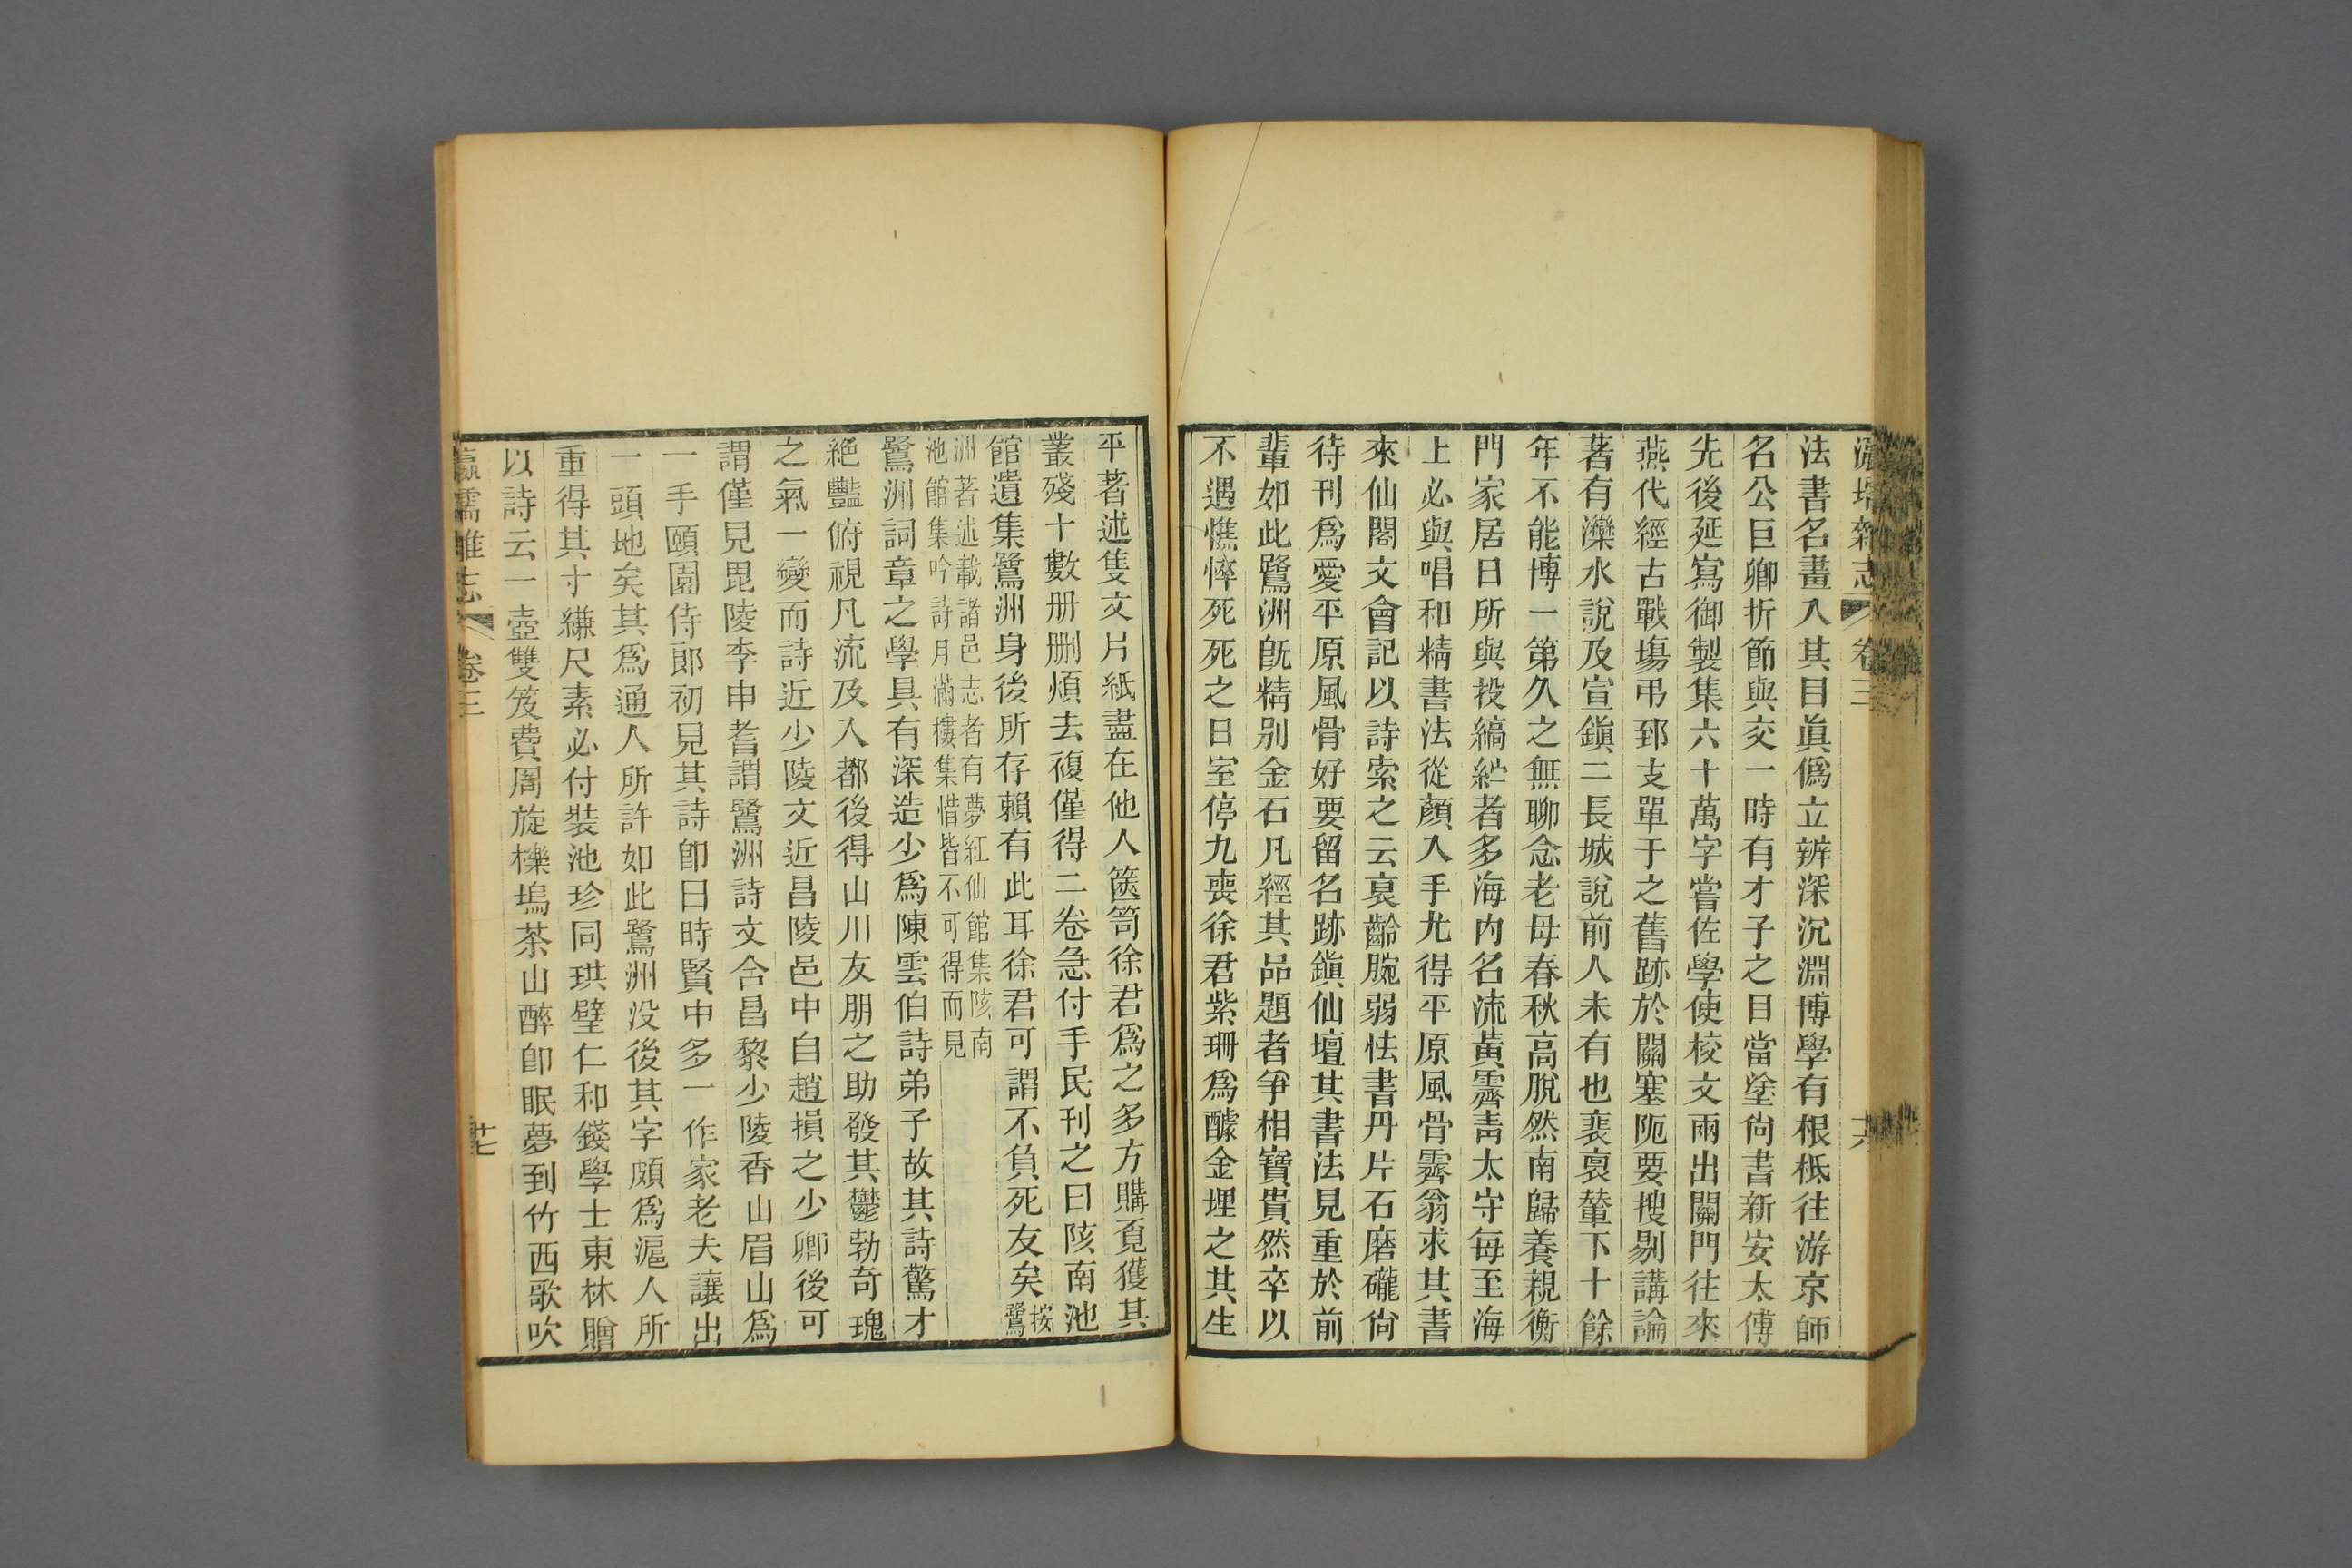 瀛壖雜志 卷三
法書名畫入其目眞僞立辨深沉淵博學有根柢往游京師
名公巨卿折節與交一時有才子之目當塗尙書新安太傅
先後延寫御製集六十萬字嘗佐學使校文兩出關門往來
燕代經古戰塲弔郅支單于之舊跡於關塞阨要搜剔講論
著有灤水說及宣鎭二長城說前人未有也裴裒輦下十餘
年不能博一第久之無聊念老母春秋高脫然南歸養親衡
門家居日所與投縞紵者多海内名流黃霽靑太守每至海
上必與唱和精書法從顏入手尤得平原風骨霽翁求其書
來仙閣文會記以詩索之云衰齡腕弱怯書丹片石磨礲尙
待刊爲愛平原風骨好要留名跡鎭仙壇其書法見重於前
輩如此鷺洲旣精别金石凡經其品題者爭相寶貴然卒以
不遇憔悴死死之日室停九喪徐君紫珊爲醵金埋之其生
平著述隻文片紙盡在他人篋笥徐君爲之多方購覓獲其
叢殘十數册删煩去複僅得二卷急付手民刊之曰陔南池
館遺集鷺洲身後所存賴有此耳徐君可謂不負死友矣按鷺
洲著述載諸邑志者有夢紅仙館集陔南
池館集吟詩月滿樓集惜皆不可得而見
鷺洲詞章之學具有深造少爲陳雲伯詩弟子故其詩驚才
絶豔俯視凡流及入都後得山川友朋之助發其鬱勃奇瑰
之氣一變而詩近少陵文近昌陵邑中自趙損之少卿後可
謂僅見毘陵李申耆謂鷺洲詩文合昌黎少陵香山眉山爲
一手頤園侍郎初見其詩卽曰時賢中多一作家老夫讓出
一頭地矣其爲通人所許如此鷺洲没後其字頗爲滬人所
重得其寸縑尺素必付裝池珍同珙璧仁和錢學士東林贈
以詩云一壺雙笈費周旋檪塢茶山醉卽眠夢到竹西歌吹
瀛壖雜志 卷三 十七